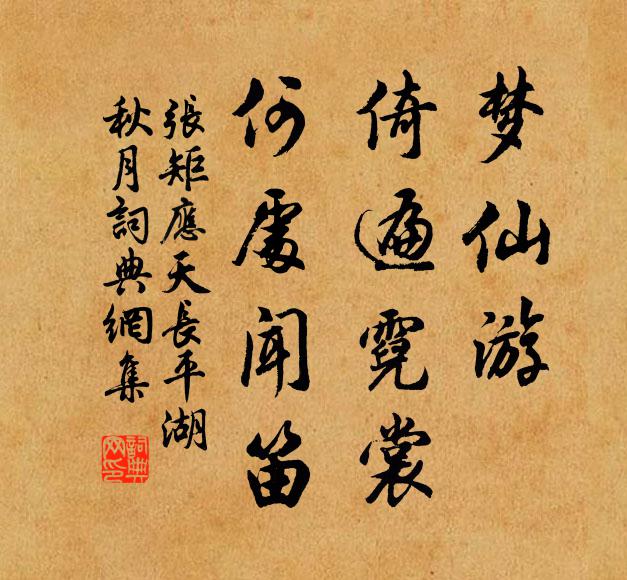 梦仙游
倚遍霓裳
何處闻笛
張矩應天長平湖
秋月詞典網集
詞典网印